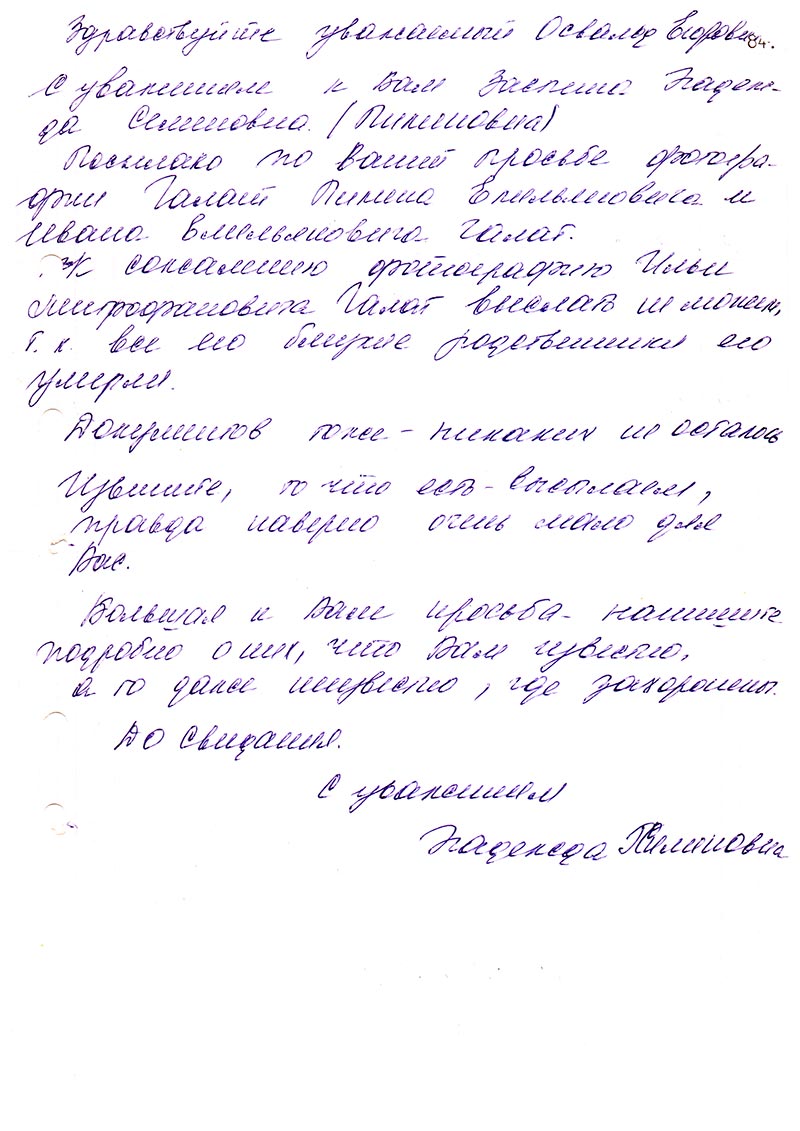 Здравствуйте уважаемый Освальд Егорович
84.
С уважением к Вам Заспина Надеж-
да Семеновна. (Пименовна)
Посылаю по Вашей просьбе фотогра-
фии Галат Пимена Емельяновича и
Ивана Емельяновича Галат.
К сожалению фотографию Ильи
Митрофановича Галат выслать не можем,
т. к. все его близкие родственники его
умерли.
Документов тоже - никаких не осталось
Извините, то что есть - высылаем,
правда наверно очень мало для
Вас.
Большая к Вам просьба - напишите
подробно о них, что Вам известно,
а то даже неизвестно, где захоронены.
До свидания.
С уважением
Надежда Пименовна